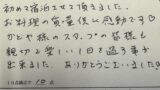 初めて宿泊させて頂きました。
お料理の質量供に感動です♡
かどや様のスタッフの皆様も
親切で楽しい1日を過ごす事が
出来ました。ありがとうございました